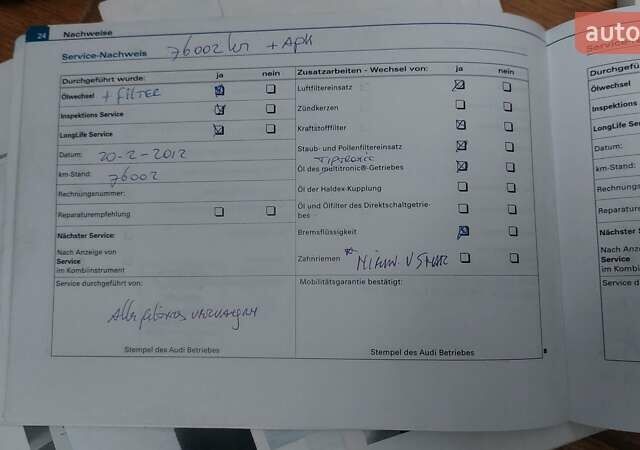 24 Nachweise
auto
Service-Nachweis 76002 km + APK
Durchgeführt wurde: ja nein
Ölwechsel + FILTER
Inspektions Service
LongLife Service
Datum: 20-2-2012
km-Stand: 76002
Rechnungsnummer:
Reparaturempfehlung
Nächster Service:
Nach Anzeige von
Service
im Kombiinstrument
Service durchgeführt von:
Stempel des Audi Betriebes
Zusatzarbeiten - Wechsel von: ja nein
Luftfiltereinsatz
Zündkerzen
Kraftstofffilter
Staub- und Pollenfiltereinsatz
TIPTRONIC
Öl des multitronic®-Getriebes
Öl der Haldex-Kupplung
Öl und Ölfilter des Direktschaltgetrie-
bes
Bremsflüssigkeit
Zahnriemen
Mobilitätsgarantie bestätigt:
Stempel des Audi Betriebes
8
Durchgeführt
Ölwechsel
Inspektions
LongLife Serv
Datum:
km-Stand:
Rechnungsn
Reparature
Nächster S
Nach Anzei
Service
im Kombiin
Service d